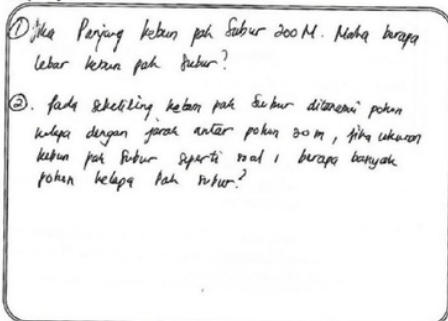 ① Jika Panjang kebun pak Subur 200 M. Maka berapa
lebar kebun pak Subur?
②. Pada sekeliling kebun pak Subur ditanami pohon
kelapa dengan jarak antar pohon 20 m, jika ukuran
kebun pak Subur seperti soal 1 berapa banyak
pohon kelapa Pak Subur?